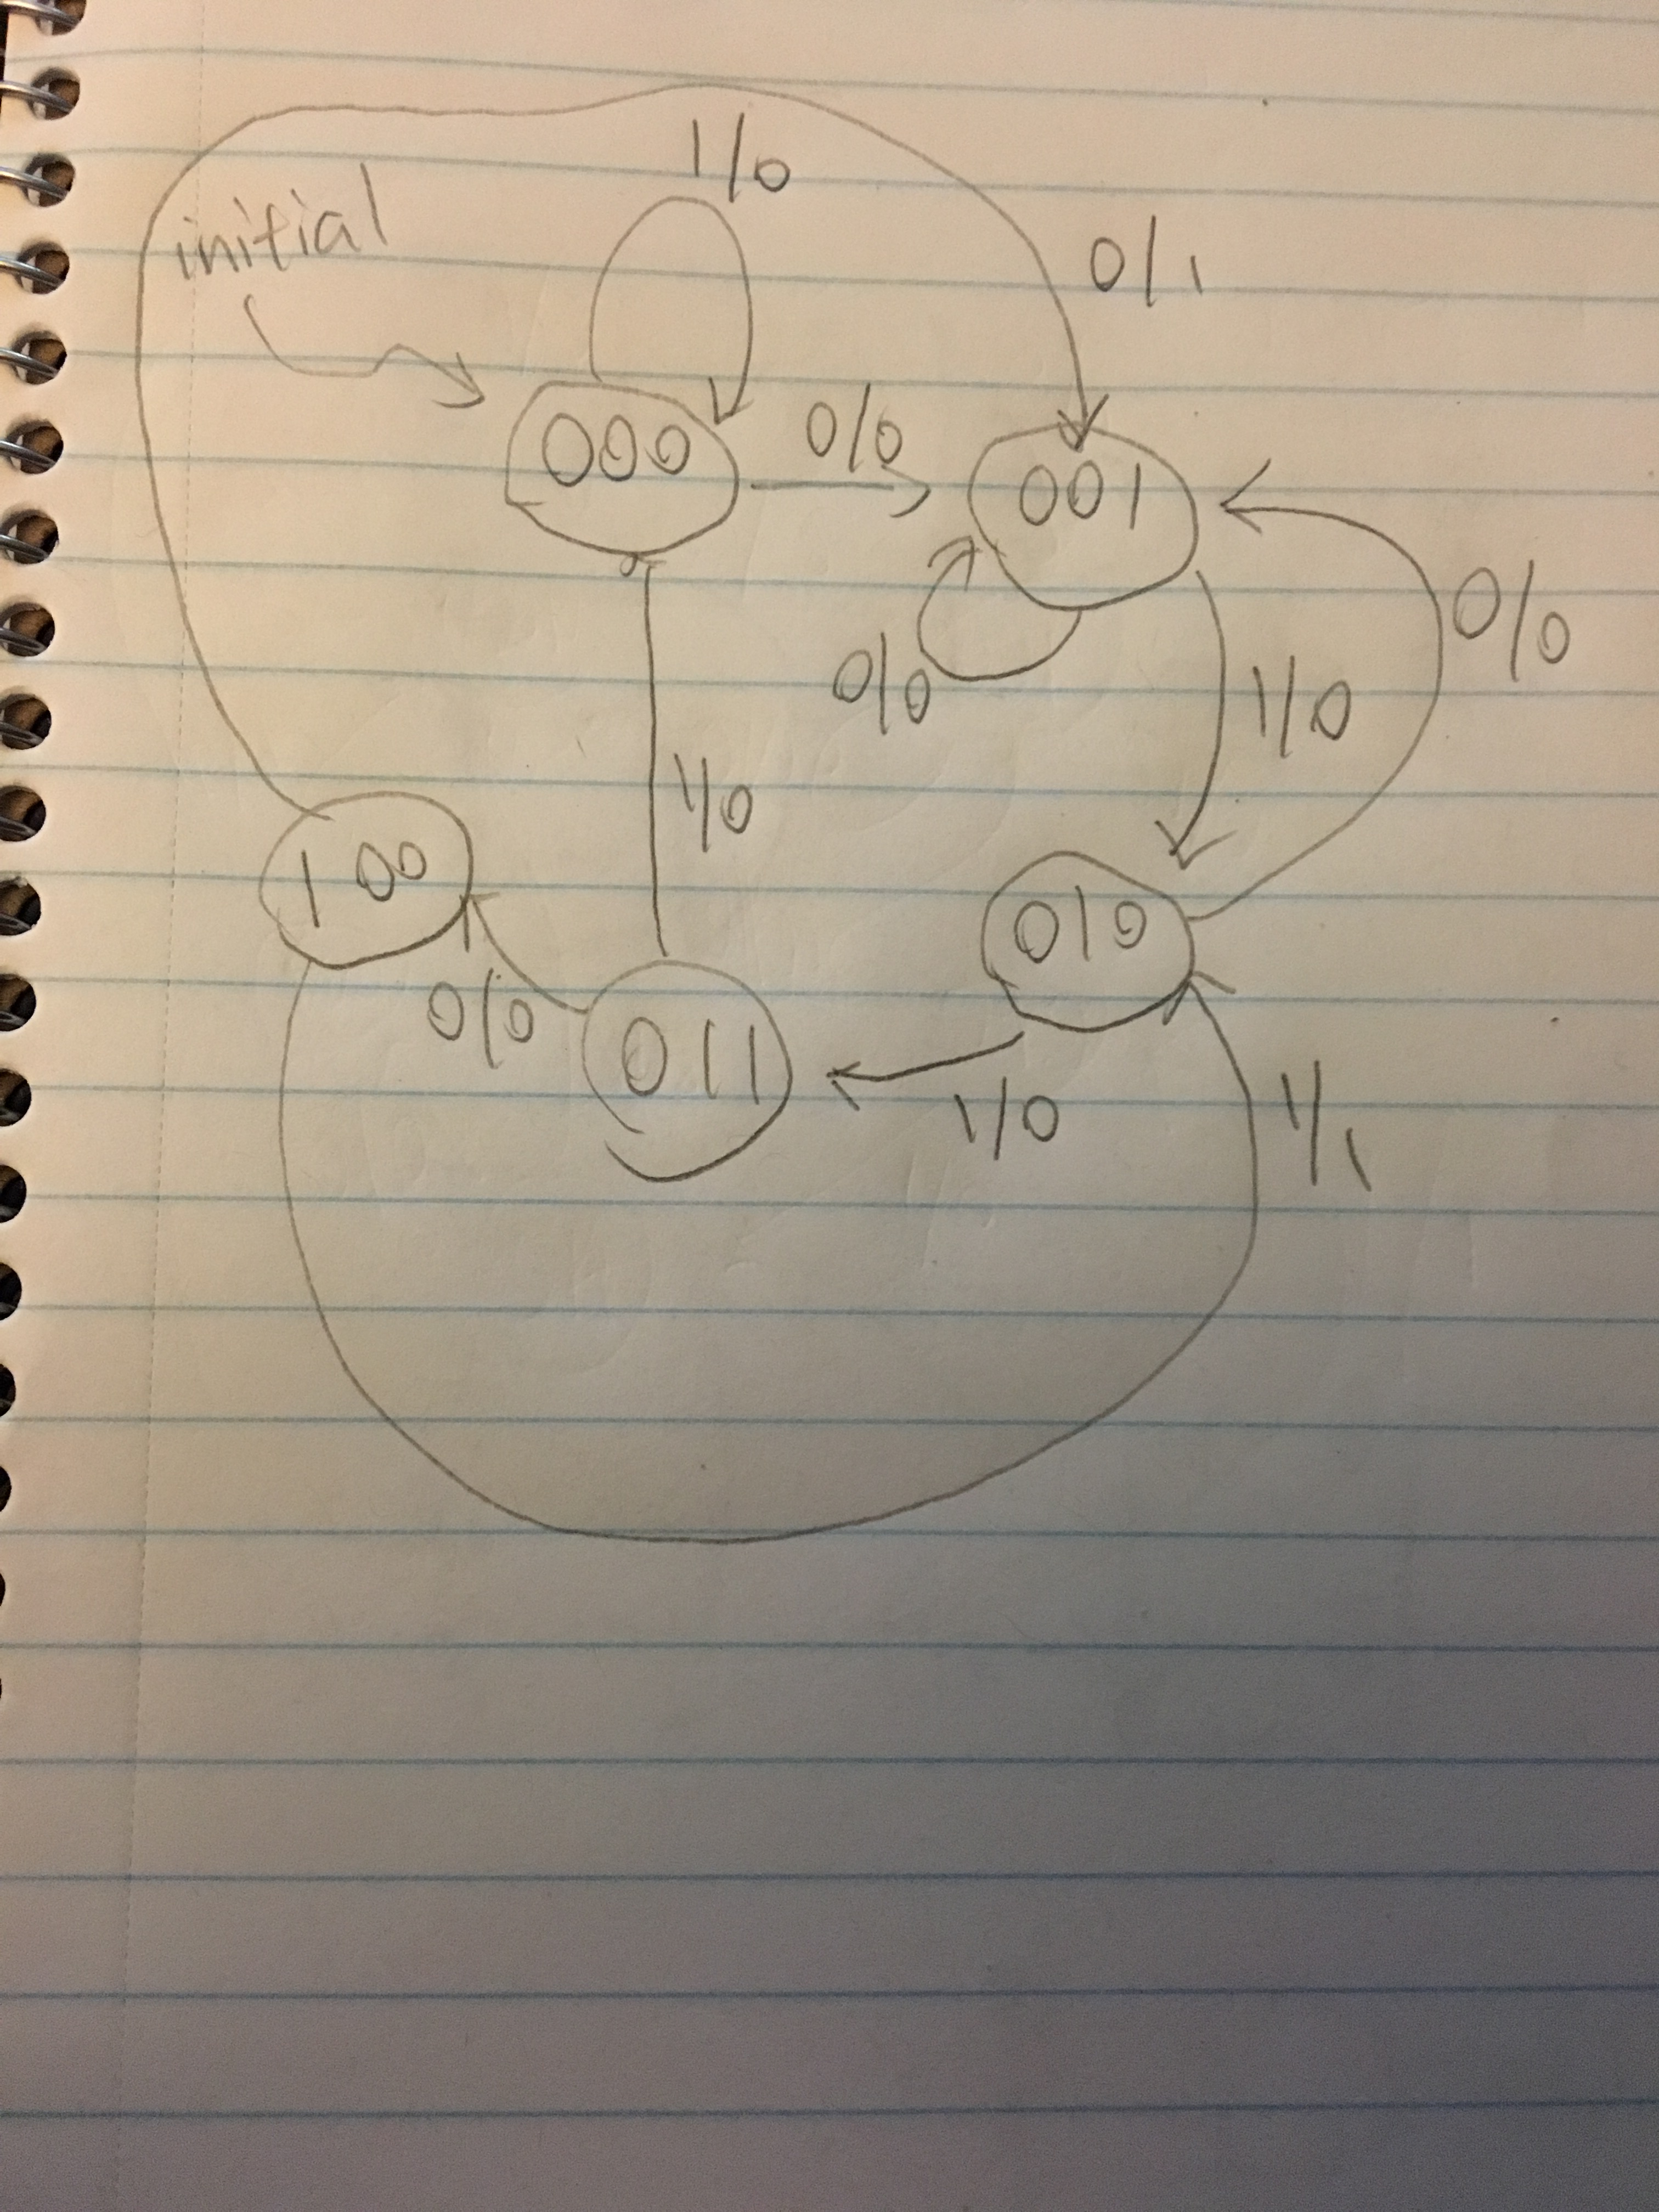 1/0
initial
0/1
000
0/0
001
0/0
0/0
1/0
1/0
100
010
0/0
011
1/0
1/1